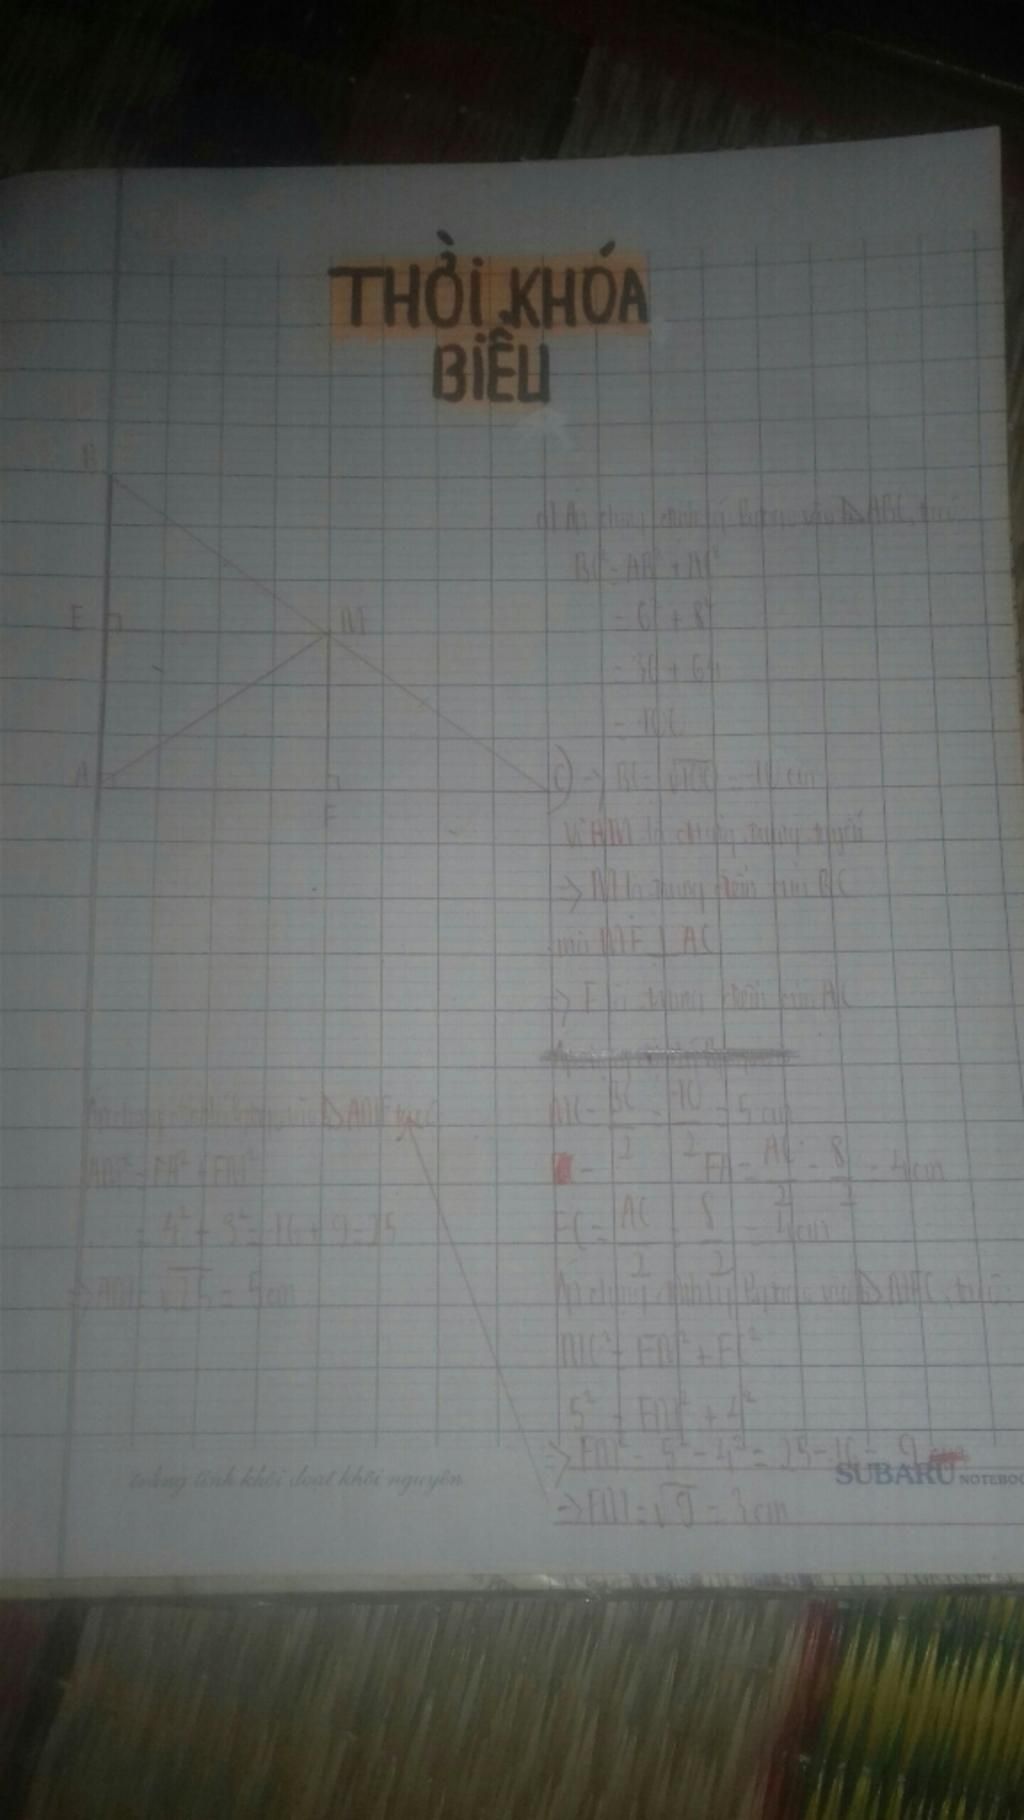 THỜI KHÓA
BIỂU
B
E
M
A
F
C
a) Áp dụng định lý Pytago vào ΔABC, ta có
BC² = AB² + AC²
= 6² + 8²
= 36 + 64
= 100
→ BC = √100 = 10 cm
Vì AM là đường trung tuyến
→ M là trung điểm của BC
mà MF ⊥ AC
→ F là trung điểm của AC
MC = BC/2 = 10/2 = 5 cm
FA = AC/2 = 8/2 = 4cm
FC = AC/2 = 8/2 = 4cm
Áp dụng định lý Pytago vào ΔMFC,
MC² = FM² + FC²
5² = FM² + 4²
=> FM² = 5² - 4² = 25 - 16 = 9
=> FM = √9 = 3 cm
Áp dụng định lý Pytago vào ΔAMF
AM² = FA² + FM²
= 4² + 3² = 16 + 9 = 25
=> AM = √25 = 5 cm
trắng tinh khôi đoạt khôi nguyên
SUBARU NOTEBOO